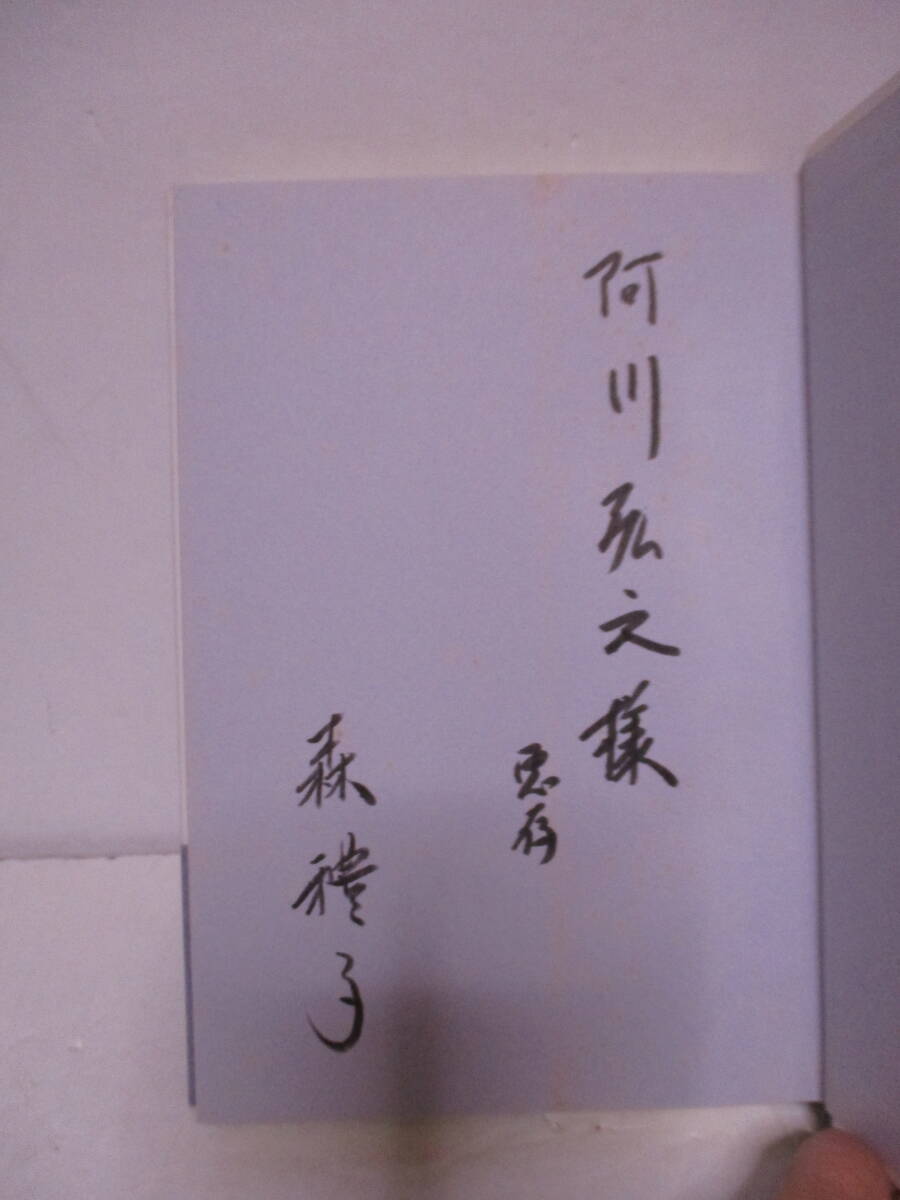 阿川弘之様
恵存
森禮子